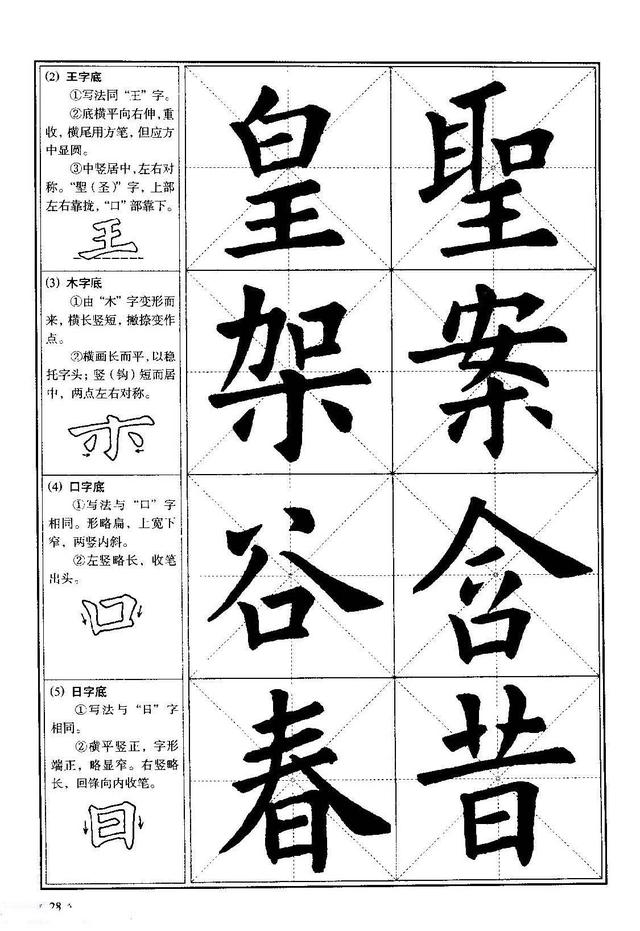 (2) 王字底
①写法同“王”字。
②底横平向右伸，重
收，横尾用方笔，但应方
中显圆。
③中竖居中，左右对
称。“聖（圣）”字，上部
左右靠拢，“口”部靠下。
王
皇 聖
(3) 木字底
①由“木”字变形而
来，横长竖短，撇捺变作
点。
②横画长而平，以稳
托字头；竖（钩）短而居
中，两点左右对称。
木
架 案
(4) 口字底
①写法与“口”字
相同。形略扁，上宽下
窄，两竖内斜。
②左竖略长，收笔
出头。
口
谷 含
(5) 日字底
①写法与“日”字
相同。
②横平竖正，字形
端正，略显窄。右竖略
长，回锋向内收笔。
日
春 昔
28